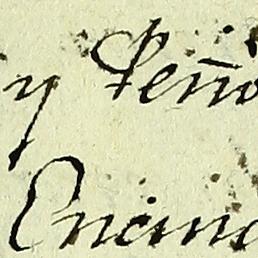 y Peño
Encina